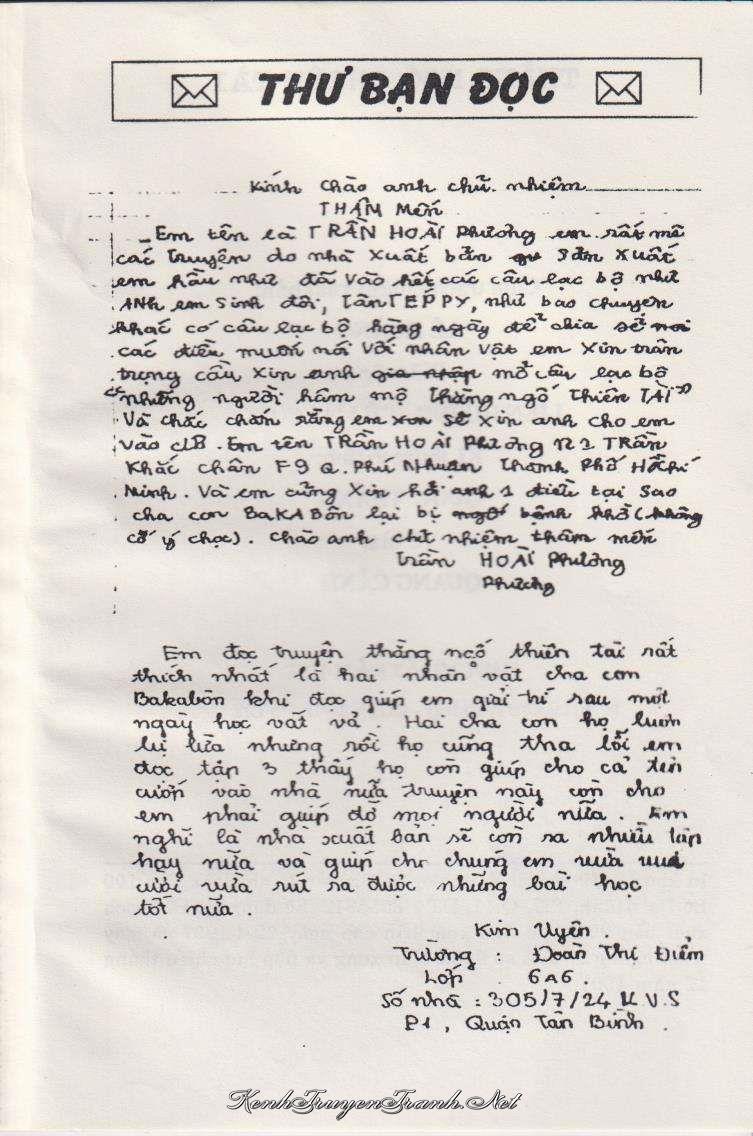 THƯ BẠN ĐỌC
Kính chào anh chủ nhiệm
THÂM mến
Em tên là TRẦN HOÀI Phương em rất mê
các truyện do nhà xuất bản sản xuất
em hầu như đã vào hết các câu lạc bộ như
ANH em sinh đôi, TÂN TEPPY, như bao chuyện
khác có câu lạc bộ hằng ngày để chia sẻ
các điều muốn nói với nhân vật em xin trân
trọng cầu xin anh gia nhập mở câu lạc bộ
"những người hâm mộ thằng ngố thiên TÀI"
Và chắc chắn rằng em xin sẽ xin anh cho em
vào CLB. Em tên TRẦN HOÀI Phương 121 TRẦN
Khắc chân F9 Q. Phú Nhuận thành Phố Hồ chí
minh. Và em cũng xin hỏi anh 1 điều tại sao
cha con BAKABÔN lại bị ngố bệnh khờ (không
cố ý chọc). chào anh chủ nhiệm thâm mến
Trần HOÀI Phương
Phương
Em đọc truyện thằng ngố thiên tài rất
thích nhất là hai nhân vật cha con
Bakabôn khi đọc giúp em giải trí sau một
ngày học vất vả. Hai cha con họ luôn
lụ lừa nhưng rồi họ cũng tha lỗi em
đọc tập 3 thấy họ còn giúp cho cả tên
cướp vào nhà nữa truyện này còn cho
em phải giúp đỡ mọi người nữa. Em
nghĩ là nhà xuất bản sẽ còn ra nhiều tập
hay nữa và giúp cho chúng em vừa vui
cười vừa rút ra được những bài học
tốt nữa.
Kim Uyên.
Trường : Đoàn Thị Điểm
Lớp . 6A6.
Số nhà : 305/7/24 K.V.S
P1, Quận Tân Bình.
KenhTruyenTranh.Net